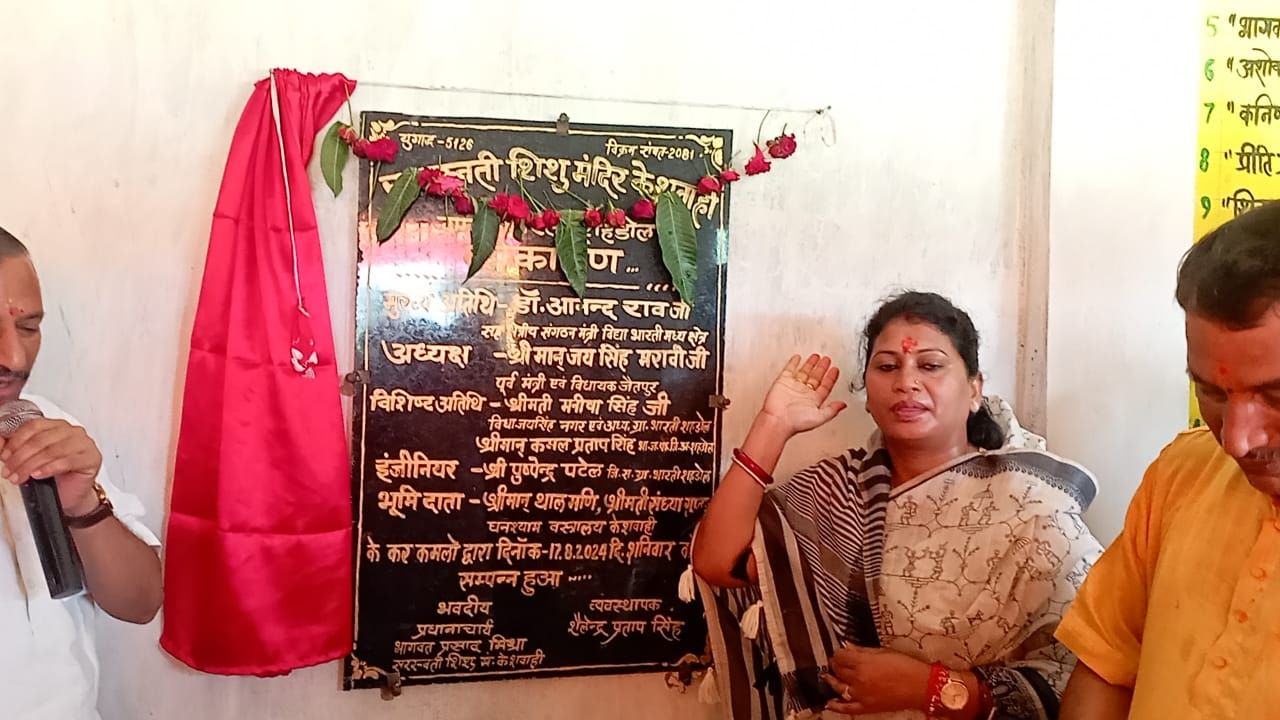 युगाब्द-5126
विक्रम संवत-2081
शिशु मंदिर केशवाही
मुख्य अतिथि - डॉ. आनन्द राव जी
क्षेत्रीय संगठन मंत्री विद्या भारती मध्य क्षेत्र
अध्यक्ष - श्री मान् जय सिंह मरावी जी
पूर्व मंत्री एवं विधायक जैतपुर
विशिष्ट अतिथि - श्रीमती मनीषा सिंह जी
विधा.जयसिंह नगर एवं अध्य. ग्रा. भारती शहडोल
श्रीमान् कमल प्रताप सिंह
इंजीनियर - श्री पुष्पेन्द्र पटेल जि.स.ग्रा. भारती शहडोल
भूमि दाता - श्रीमान् थाल मणि, श्रीमती संध्या गुप्ता
घनश्याम वस्त्रालय केशवाही
के कर कमलो द्वारा दिनाँक-17.8.2024 दि. शनिवार
सम्पन्न हुआ ....
भवदीय
प्रधानाचार्य
भागवत प्रसाद मिश्रा
सरस्वती शिशु म. केशवाही
व्यवस्थापक
शैलेन्द्र प्रताप सिंह
5
6
7
8 "प्रीति
9